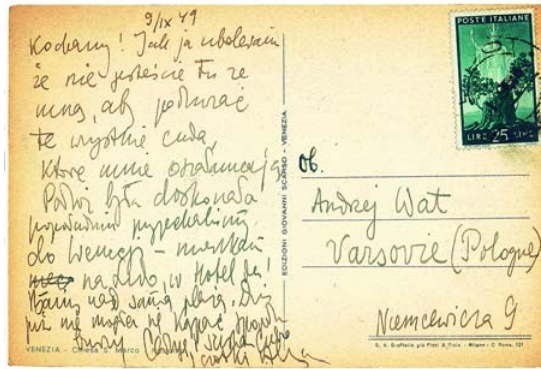 9/IX 49
Kochany! Jak ja ubolewam
że nie jesteście tu ze
mną, aby podziwiać
te wszystkie cuda,
które mnie oszałamiają
Podróż była doskonała
popołudniu przyjechaliśmy
do Wenecji – mieszkam
na Lido, w Hotel des
nad samą plażą. Dziś
już nie mogłam się kąpać
Całuję
POSTE ITALIANE
LIRE 25
EDIZIONI GIOVANNI SCARSO - VENEZIA
Ob.
Andrzej Wat
Varsovie (Pologne)
Niemcewicza 9
VENEZIA - Chiesa S. Marco
S. A. Grafitalia già Pizzi & Pizio - Milano - C. Roma, 121